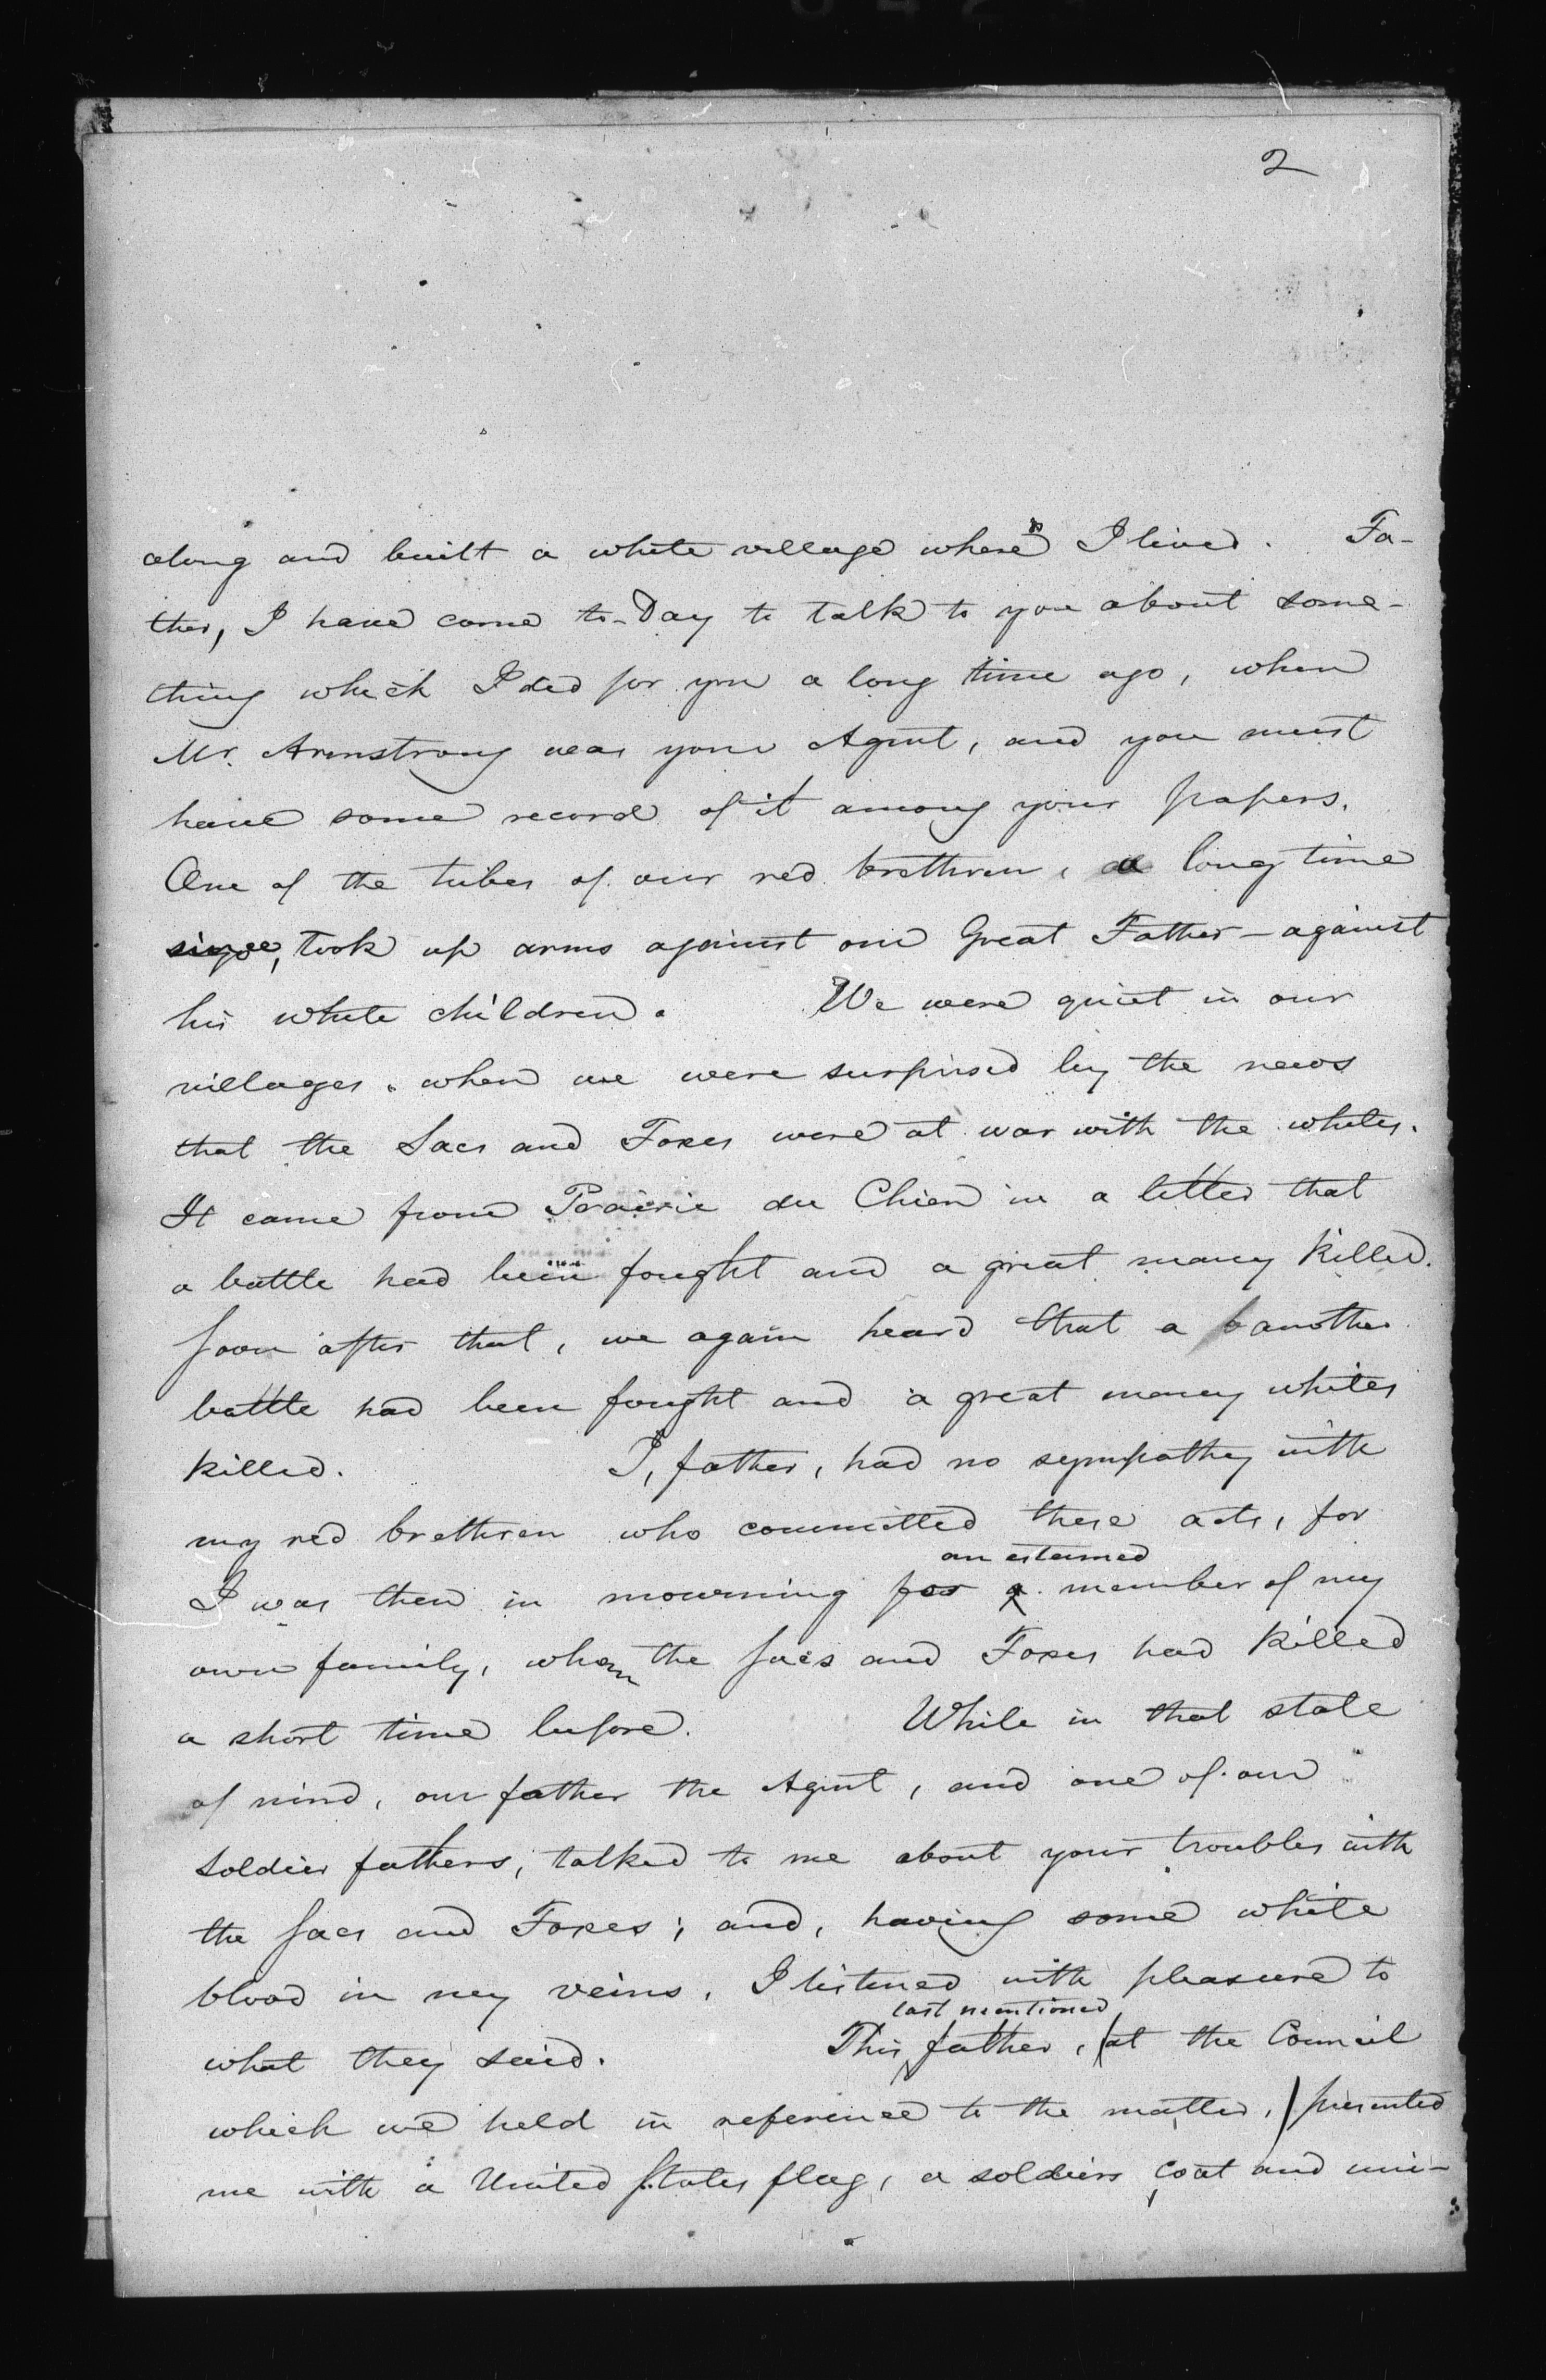 2
along and built a white village where I lived. Fa-
ther, I have come to-Day to talk to you about some-
thing which I did for you a long time ago, when
Mr. Armstrong was your Agent, and you must
have some record of it among your papers.
One of the tribes of our red brethren, a long time
since, took up arms against our Great Father - against
his white children. We were quiet in our
villages, when we were surprised by the news
that the Sacs and Foxes were at war with the whites.
It came from Prairie du Chien in a letter that
a battle had been fought and a great many killed.
Soon after that, we again heard that a b another
battle had been fought and a great many whites
killed. I, father, had no sympathy with
my red brethren who committed these acts, for
an esteemed
I was then in mourning for a member of my
own family, whom the Sacs and Foxes had killed
a short time before. While in that state
of mind, our father the Agent, and one of our
soldier fathers, talked to me about your troubles with
the Sacs and Foxes; and, having some white
blood in my veins, I listened with pleasure to
last mentioned
what they said. This father, (at the Council
which we held in reference to the matter,) presented
me with a United States flag, a soldiers coat and uni-